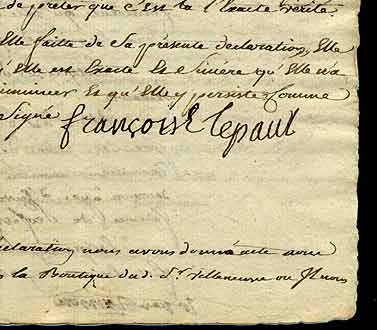 de preter que c'est la l'Exacte vérité.
Elle faitte de Sa présente déclaration, Elle
Elle est Exacte Et Sincère qu'Elle n'a
Et qu'Elle y persiste Comme
Signé françoise lepaul
déclaration, nous avons donné acte
la Boutique dud. Sr. Villeneuve ou Il nous